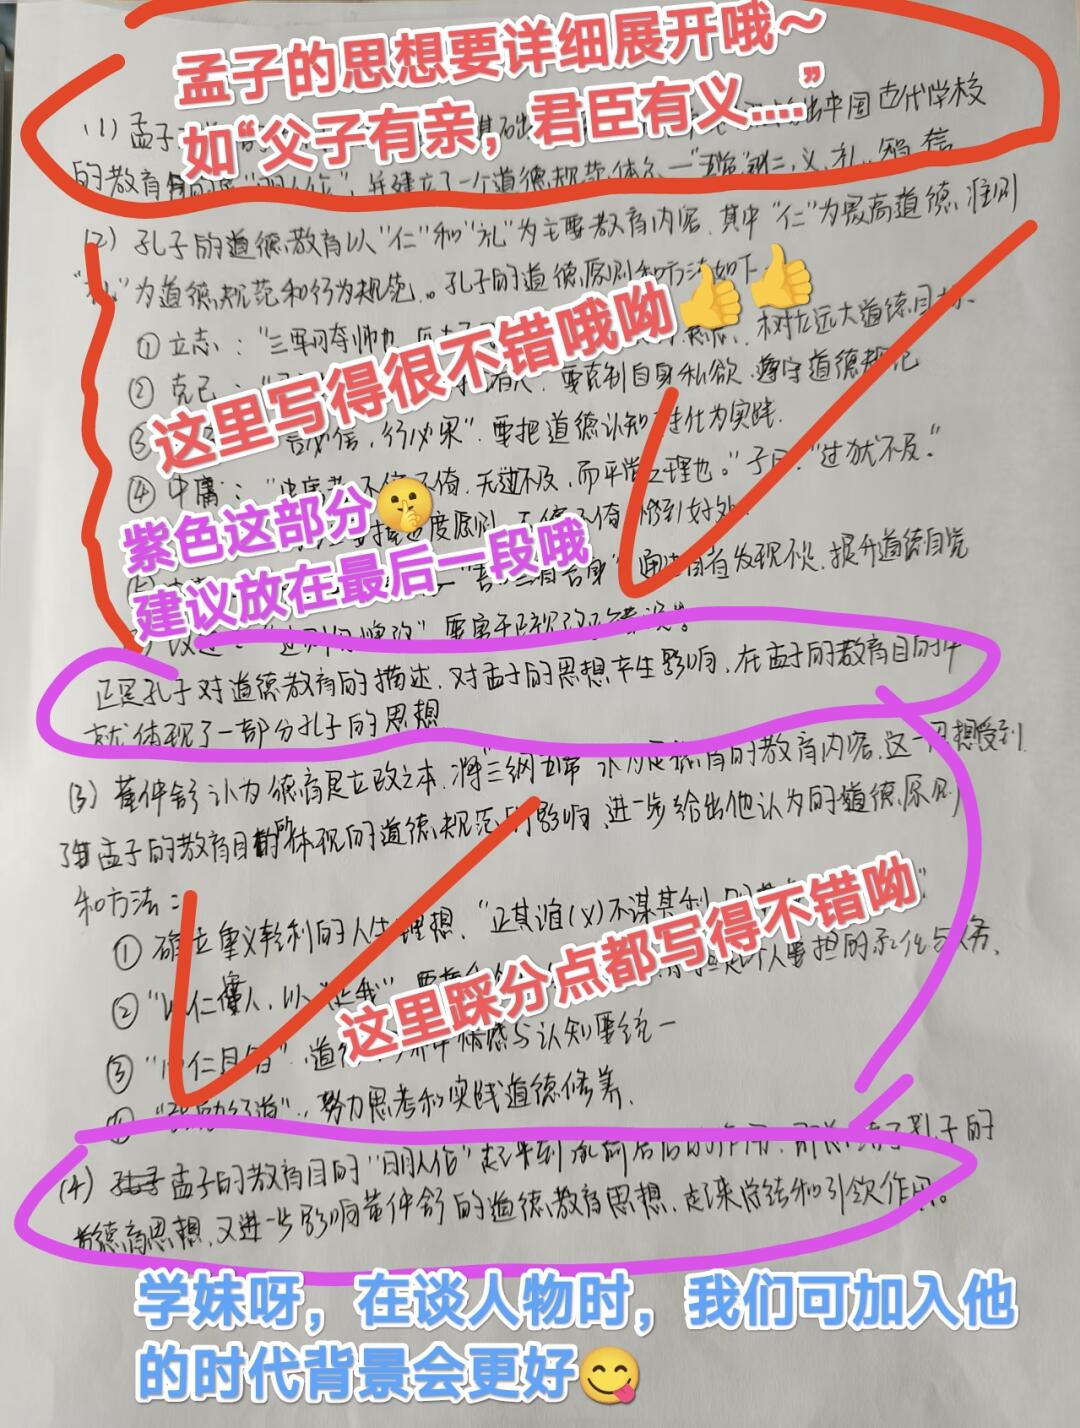 孟子的思想要详细展开哦～
如“父子有亲，君臣有义....”
(1) 孟子 基础 出中国古代学校
的教育目的是"明人伦"，并建立了一个道德规范体系—"五常"义、礼、智、信
(2) 孔子的道德教育以"仁"和"礼"为主要教育内容，其中"仁"为最高道德准则
"礼"为道德规范和行为规范。孔子的道德原则和方法如下
① 立志："三军可夺帅也 树立远大道德目标.
② 克己： 要克制自身私欲，遵守道德规范
这里写得很不错哦呦👍👍
③ 言必信，行必果"．要把道德认知转化为实践.
④ 中庸： 不偏不倚，无过不及，而平常之理也。"子曰："过犹不及."
紫色这部分🤫
建议放在最后一段哦
度原则 不偏不倚 恰到好处.
吾 省吾身" 通过自省发现不足，提升道德自觉
正是孔子对道德教育的描述，对孟子的思想产生影响，在孟子的教育目的中
就体现了一部分孔子的思想
(3) 董仲舒认为德育是立政之本，将"三纲五常"认为是教育的教育内容，这一思想受到
孟子的教育目的所体现的道德规范的影响，进一步给出他认为的道德原则
和方法：
① 确立重义轻利的人生理想，"正其谊(义)不谋其利
② "以仁安人，以义正我"
这里踩分点都写得不错呦
③ 情感与认知要统一
④ 努力思考和实践道德修养.
(4) 孟子的教育目的"明人伦"起来到承前启后的作用，孔子的
德育思想，又进一步影响董仲舒的道德教育思想，起来总结和引领作用。
学妹呀，在谈人物时，我们可加入他
的时代背景会更好😋